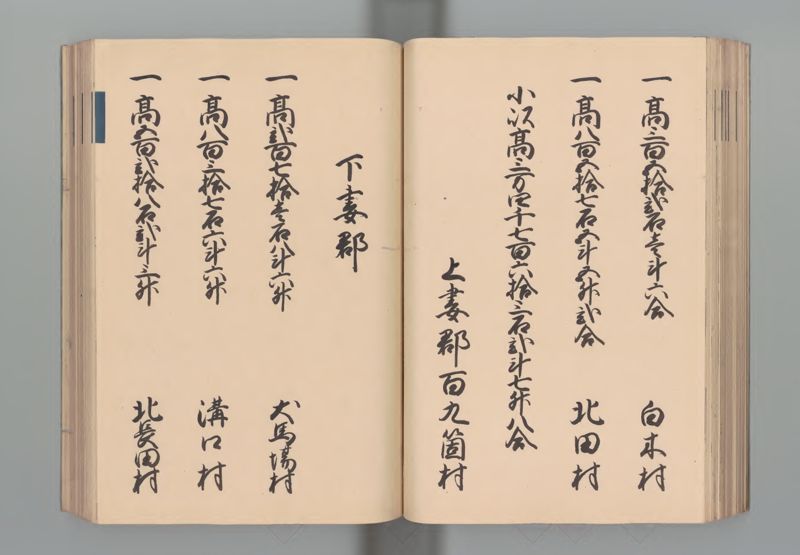 一高三百五拾弐石壱斗六合　白木村
一高八百五拾七石五斗五升弐合　北田村
小以高三万四千七百六拾三石弐斗七升八合
上妻郡百九箇村
下妻郡
一高弐百七拾壱石八斗六升　犬馬場村
一高八百三拾七石六斗六升　溝口村
一高五百弐拾八石弐斗三升　北長田村